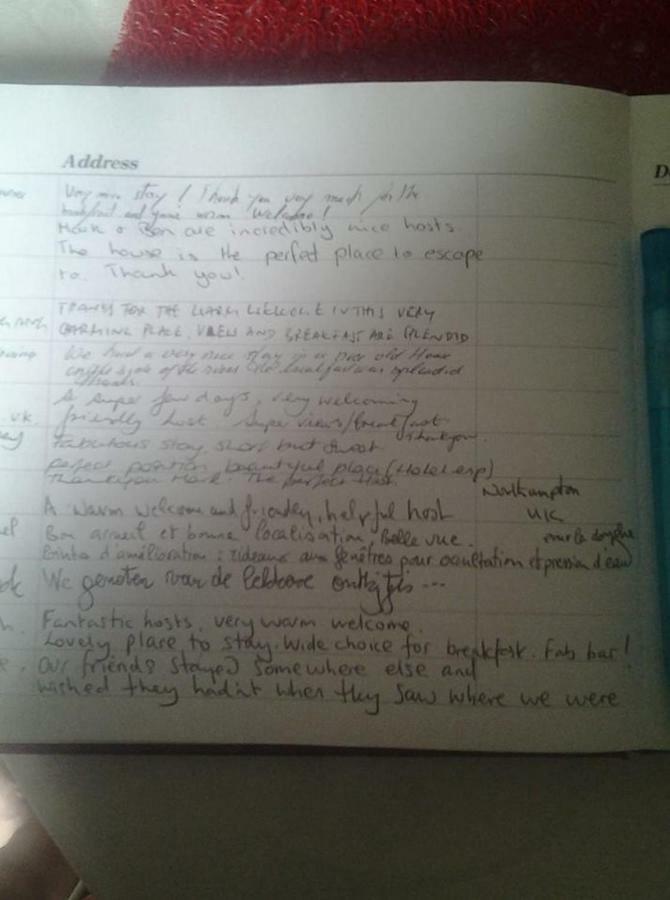 Address
Very nice stay! Thank you very much for the
breakfast and your warm welcome!
Mark & Ben are incredibly nice hosts.
The house is the perfect place to escape
to. Thank you!
THANKS FOR THE WARM WELCOME IN THIS VERY
CHARMING PLACE. VIEW AND BREAKFAST ARE SPLENDID
We had a very nice stay in a old House
on the side of the river. The breakfast was splendid
thanks.
A super few days, very welcoming
friendly host super views/breakfast
Thankyou.
UK.
Fabulous stay, short but sweet
perfect position, beautiful place (Hotel esp)
Thankyou Mark. The perfect Host.
Northampton
UK
A warm welcome and friendly, helpful host
Bon accueil et bonne localisation, Belle vue.
Points d'amélioration : rideaux aux fenêtres pour occultation et pression d'eau
sur la douche
We genoten van de lekkere ontbijtjes ---
Fantastic hosts, very warm welcome.
Lovely place to stay. Wide choice for breakfast. Fab bar!
Our friends stayed somewhere else and
wished they hadn't when they saw where we were